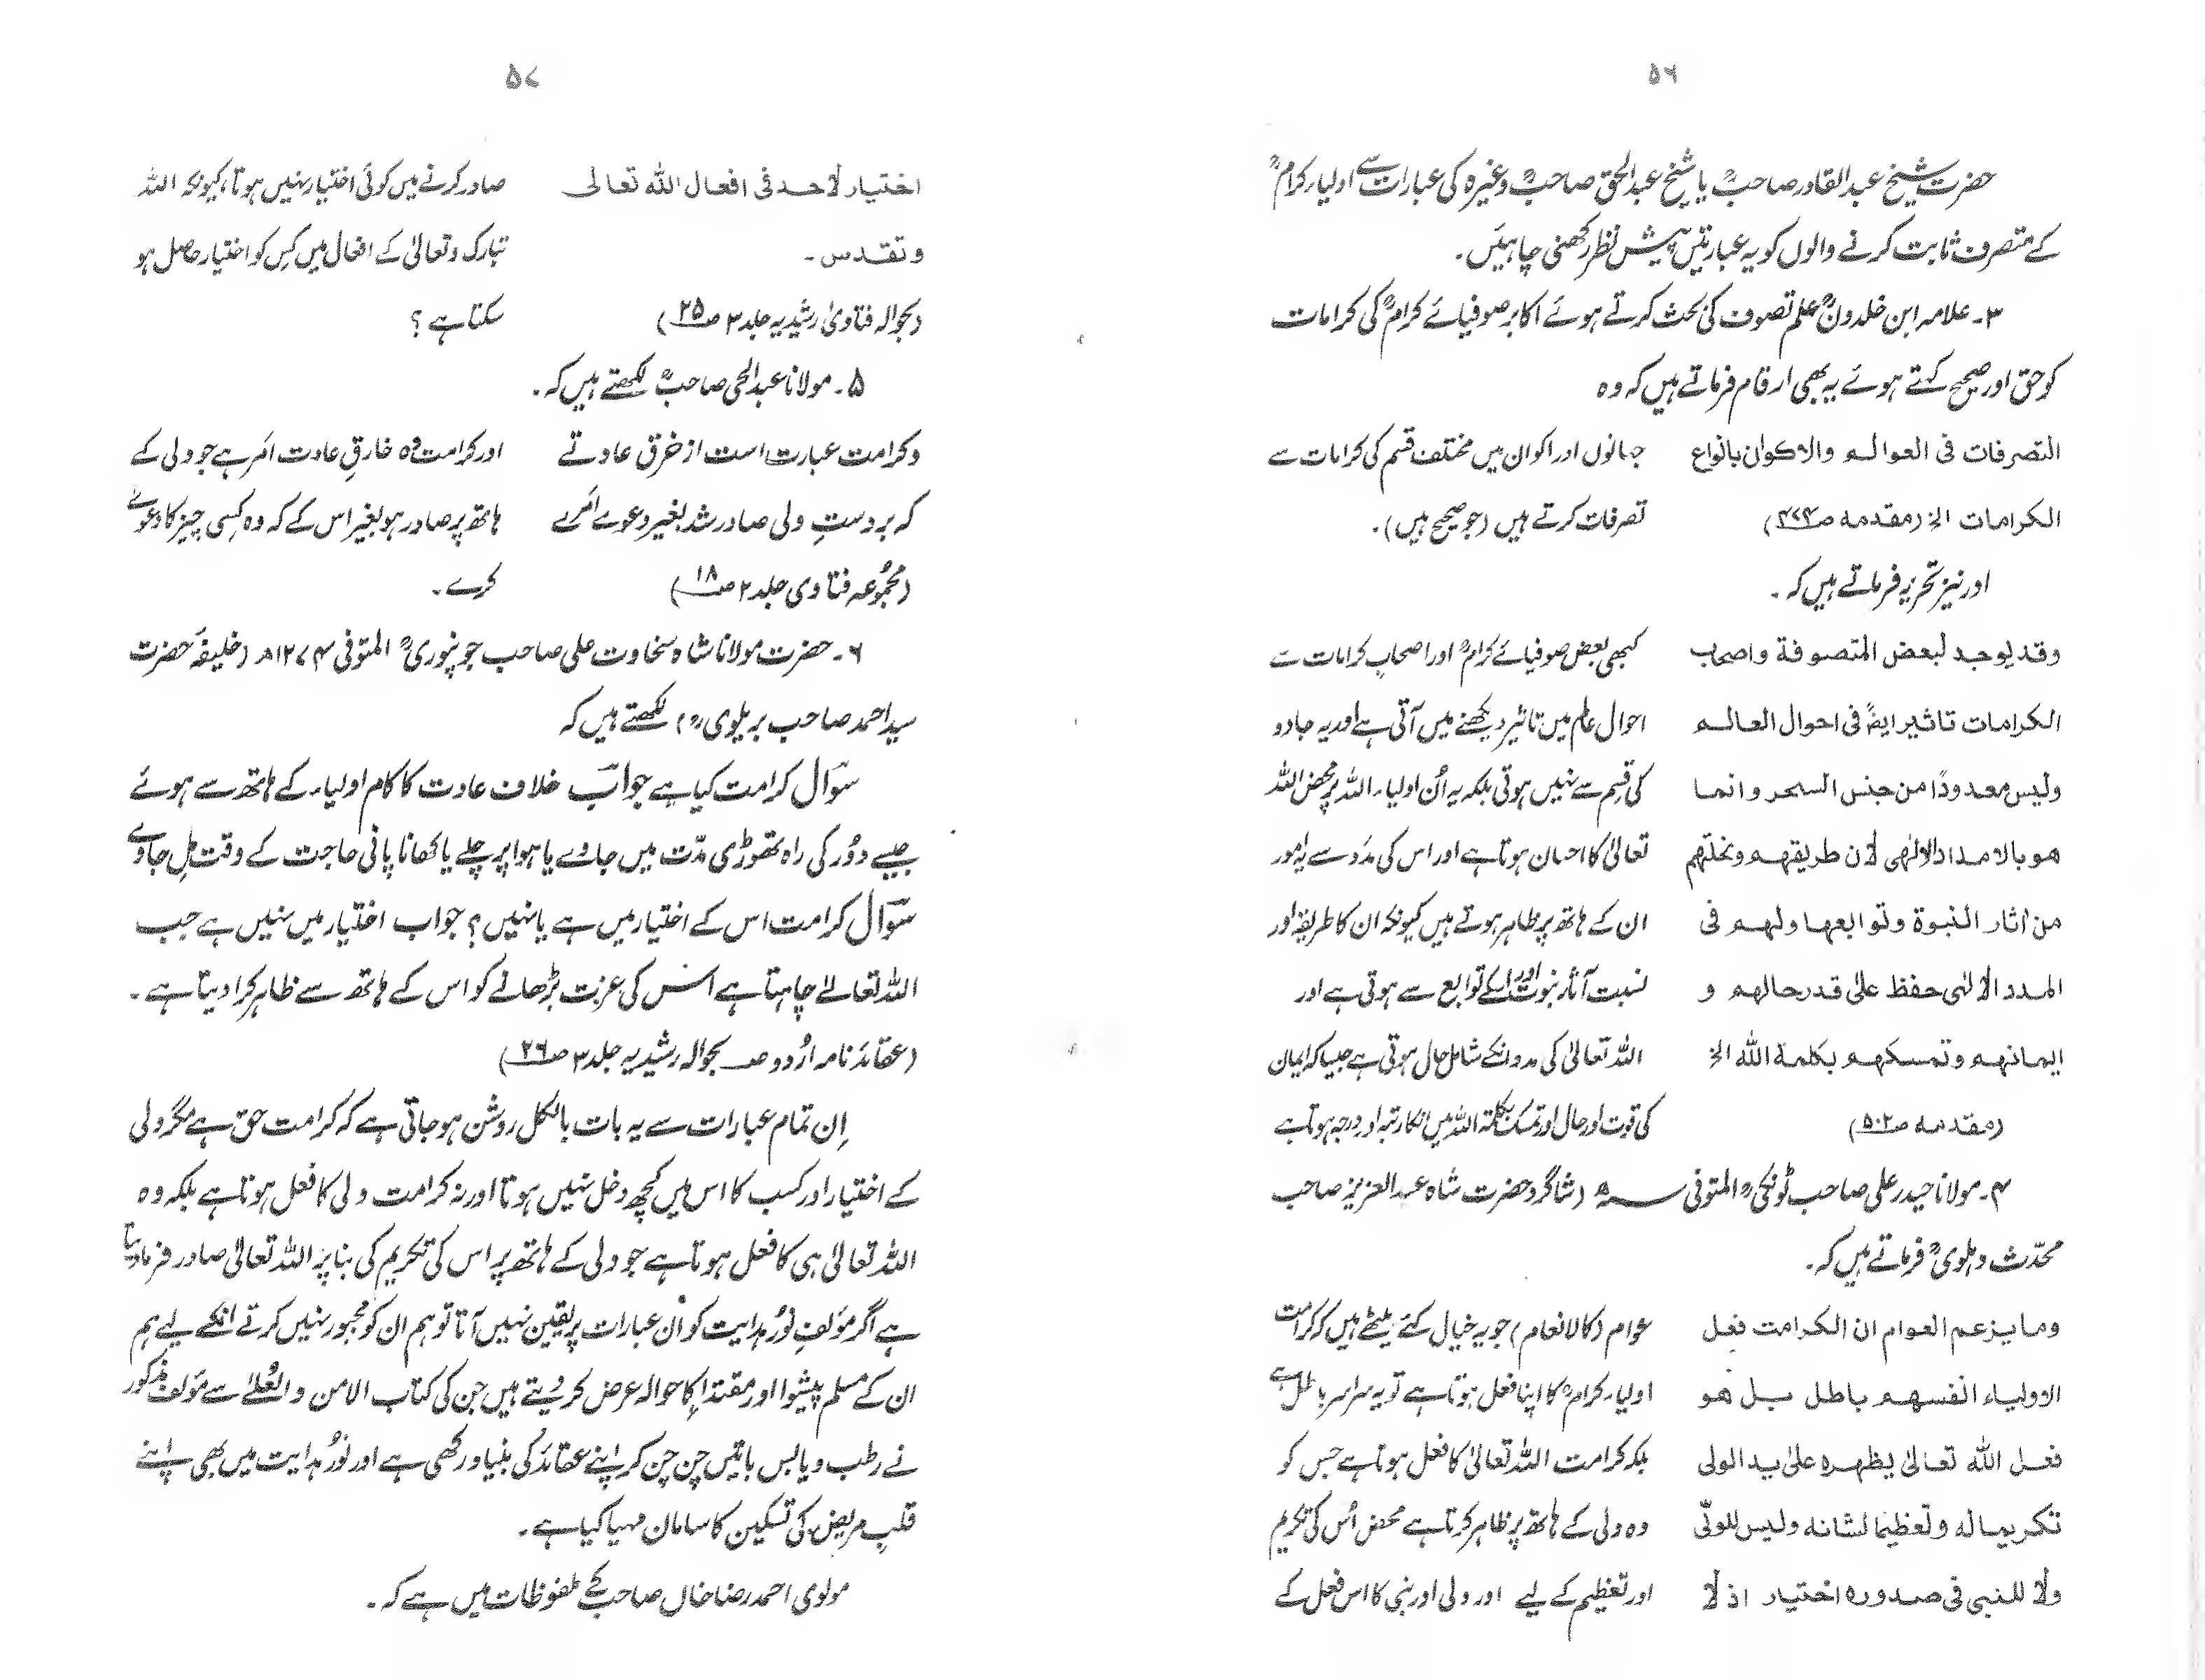 ۵۶
حضرت شیخ عبدالقادر صاحبؒ یا شیخ عبدالحق صاحبؒ وغیرہ کی عبارات سے اولیاء کرامؒ
کے متصرف ثابت کرنے والوں کو یہ عبارتیں پیش نظر رکھنی چاہئیں۔
۳۔ علامہ ابن خلدونؒ علم تصوف کی بحث کرتے ہوئے اکابر صوفیائے کرامؒ کی کرامات
کو حق اور صحیح کہتے ہوئے یہ بھی ارقام فرماتے ہیں کہ وہ
التصرفات فی العوالم والاکوان بانواع
الکرامات الخ (مقدمہ ص۴۷۴)
جہانوں اور اکوان میں مختلف قسم کی کرامات سے
تصرفات کرتے ہیں (جو صحیح ہیں)۔
اور نیز تحریر فرماتے ہیں کہ۔
وقد یوجد لبعض المتصوفة واصحاب
الکرامات تاثیر ایضًا فی احوال العالم
ولیس معدودًا من جنس السحر وانما
ھو بالامداد الالٰھی لان طریقھم ونحلتھم
من اٰثار النبوة وتوابعھا ولھم فی
المدد الالٰہی حفظ علیٰ قدر حالھم و
ایمانھم وتمسکھم بکلمة اللہ الخ
(مقدمہ ص۵۰۲)
کبھی بعض صوفیائے کرامؒ اور اصحابِ کرامات سے
احوال عالم میں تاثیر دیکھنے میں آتی ہے اور یہ جادو
کی قسم سے نہیں ہوتی بلکہ یہ اُن اولیاء اللہ پر محض اللہ
تعالیٰ کا احسان ہوتا ہے اور اس کی مَدد سے یہ امور
ان کے ہاتھ پر ظاہر ہوتے ہیں کیونکہ ان کا طریقہ اور
نسبت آثار نبوت اور اسکے توابع سے ہوتی ہے اور
اللہ تعالیٰ کی مدد انکے شامل حال ہوتی ہے جیسا کہ ایمان
کی قوت اور حال اور تمسک بکلمۃ اللہ میں انکا رتبہ اور درجہ ہوتا ہے
۴۔ مولانا حیدر علی صاحب ٹونکیؒ المتوفی سنہ ھ (شاگرد حضرت شاہ عبدالعزیز صاحب
محدّث دہلویؒ فرماتے ہیں کہ۔
وما یزعم العوام ان الکرامت فعل
الاولیاء انفسھم باطل بل ھو
فعل اللہ تعالیٰ یظھرہ علیٰ ید الولی
تکریما لہ وتعظیمًا لشانہ ولیس للولیّ
ولا للنبی فی صدورہ اختیار اذ لا
عوام (کالانعام) جو یہ خیال کئے بیٹھے ہیں کہ کرامت
اولیاء کرامؒ کا اپنا فعل ہوتا ہے تو یہ سراسر باطل ہے
بلکہ کرامت اللہ تعالیٰ کا فعل ہوتا ہے جس کو
وہ ولی کے ہاتھ پر ظاہر کرتا ہے محض اُس کی تکریم
اور تعظیم کے لیے اور ولی اور نبی کا اس فعل کے
۵۷
اختیار لاحد فی افعال اللہ تعالی
وتقدس۔
(بحوالہ فتاویٰ رشیدیہ جلد ۳ ص۲۵)
صادر کرنے میں کوئی اختیار نہیں ہوتا، کیونکہ اللہ
تبارک وتعالیٰ کے افعال میں کِس کو اختیار حاصل ہو
سکتا ہے؟
۵۔ مولانا عبدالحی صاحبؒ لکھتے ہیں کہ۔
وکرامت عبارت است از خرق عادتے
کہ بر دستِ ولی صادر شد بغیر دعوے اَمرے
(مجموعہ فتاوی جلد ۲ ص۱۸)
اور کرامت وہ خارقِ عادت اَمر ہے جو ولی کے
ہاتھ پر صادر ہو بغیر اس کے کہ وہ کِسی چیز کا دعوےٰ
کرے۔
۶۔ حضرت مولانا شاہ سخاوت علی صاحب جونپوریؒ المتوفی ۱۲۷۴ھ (خلیفہَ حضرت
سید احمد صاحب بریلویؒ) لکھتے ہیں کہ
سوال کرامت کیا ہے جواب خلاف عادت کا کام اولیاء کے ہاتھ سے ہوئے
جیسے دوُر کی راہ تھوڑی مدّت میں جاوے یا ہوا پر چلے یا کھانا پانی حاجت کے وقت مِل جاوے
سوال کرامت اس کے اختیار میں ہے یا نہیں؟ جواب اختیار میں نہیں ہے جب
اللہ تعالےٰ چاہتا ہے اس کی عزت بڑھانے کو اس کے ہاتھ سے ظاہر کرا دیتا ہے۔
(عقائد نامہ اُردو ص بحوالہ رشیدیہ جلد ۳ ص۲۶)
اِن تمام عبارات سے یہ بات بالکل روشن ہو جاتی ہے کہ کرامت حق ہے مگر ولی
کے اختیار اور کسب کا اس میں کچھ دخل نہیں ہوتا اور نہ کرامت ولی کا فعل ہوتا ہے بلکہ وہ
اللہ تعالیٰ ہی کا فعل ہوتا ہے جو ولی کے ہاتھ پر اس کی تکریم کی بنا پر اللہ تعالیٰ صادر فرماتا
ہے اگر مؤلفِ نورُ ہدایت کو اُن عبارات پر یقین نہیں آتا تو ہم ان کو مجبور نہیں کرتے انکے لیے ہم
ان کے مسلم پیشوا اور مقتدا کا حوالہ عرض کر دیتے ہیں جن کی کتاب الامن والعُلیٰ سے مؤلف مذکور
نے رطب ویابس باتیں چن چن کر اپنے عقائد کی بنیاد رکھی ہے اور نورُ ہدایت میں بھی اپنے
قلبِ مریض کی تسکین کا سامان مہیا کیا ہے۔
مولوی احمد رضا خاں صاحب کے ملفوظات میں ہے کہ۔